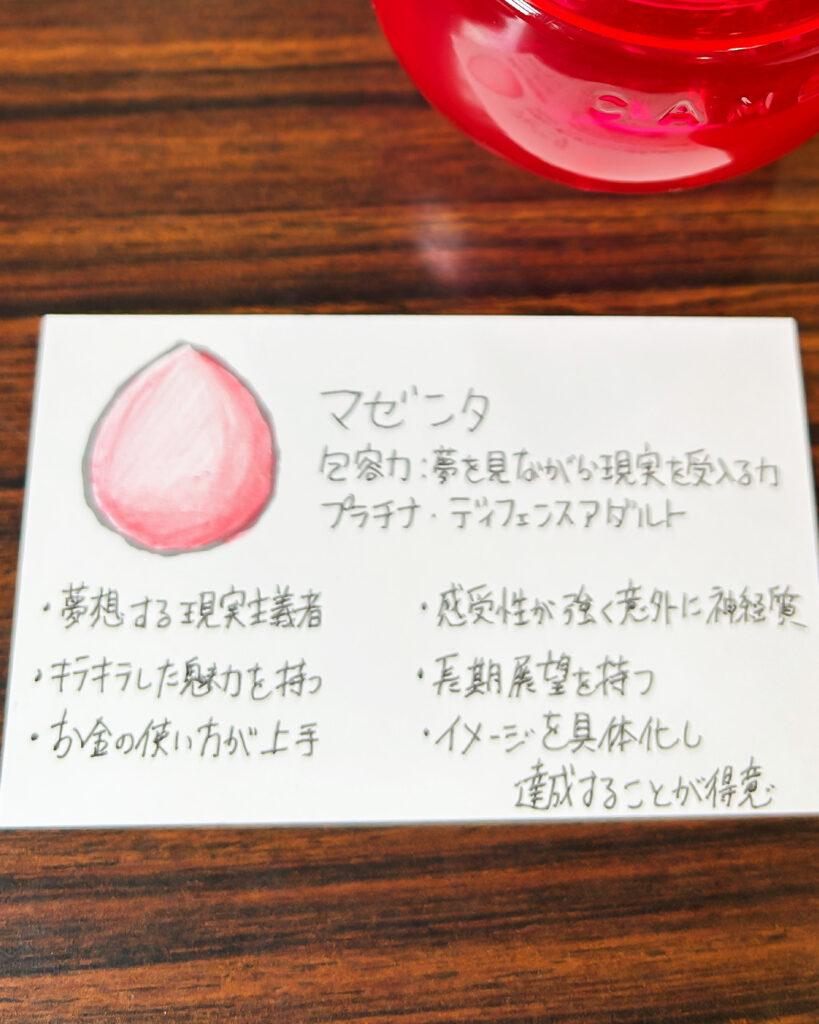 CAN
マゼンタ
包容力:夢を見ながら現実を受入る力
プラチナ・ディフェンスアダルト
・夢想する現実主義者
・キラキラした魅力を持つ
・お金の使い方が上手
・感受性が強く意外に神経質
・長期展望を持つ
・イメージを具体化し
達成することが得意